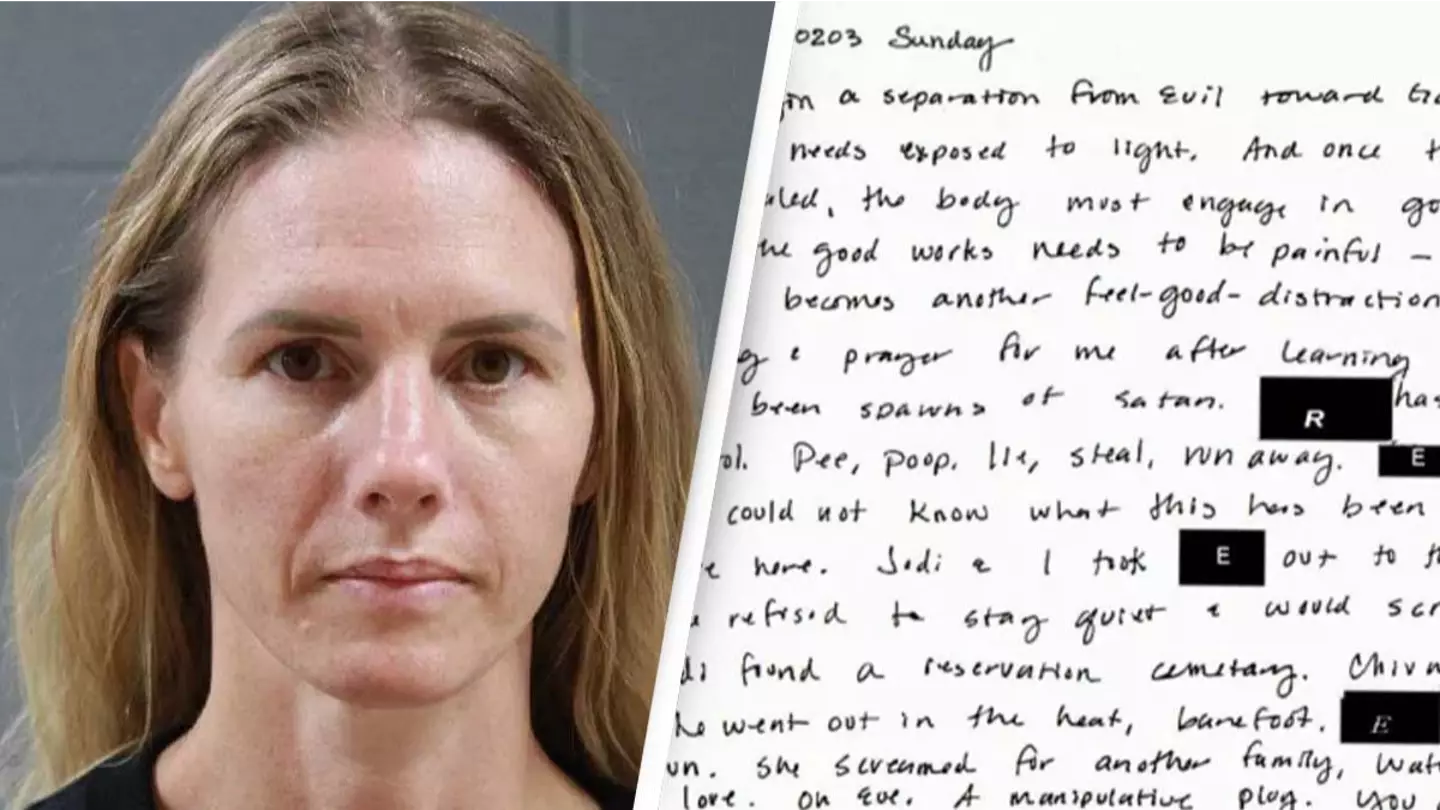 0203 Sunday
a separation from Evil toward
needs exposed to light. And once
the body must engage in
good works needs to be painful –
becomes another feel-good-distraction
& prayer for me after learning
been spawns of satan. R has
Pee, poop, lie, steal, run away. E
could not know what this has been
here. Jodi & I took E out to
refused to stay quiet & would
found a reservation cemetary.
went out in the heat, barefoot. E
She screamed for another family,
love. On Eve. A manipulative plug. You